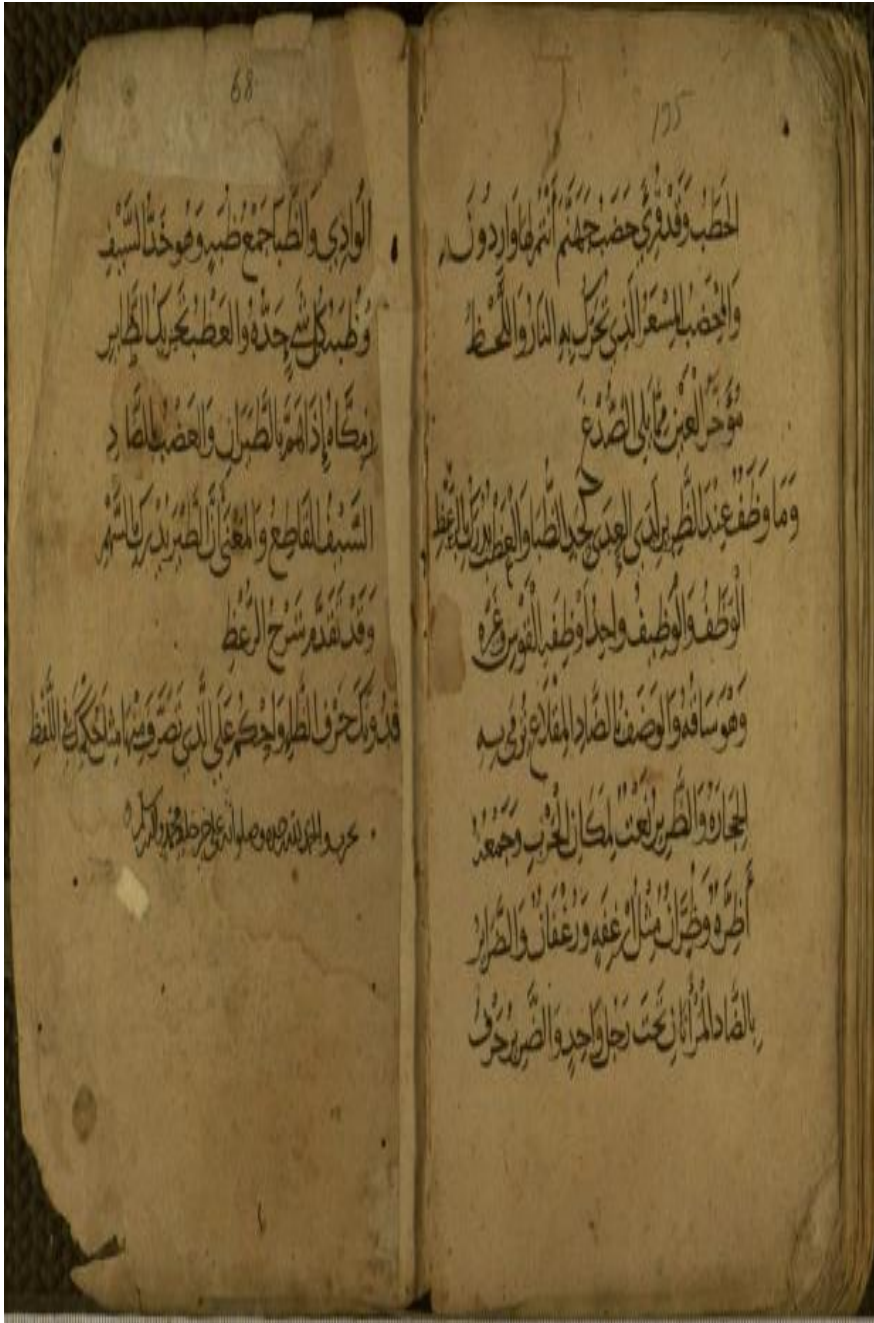 195
الحَطَبُ وَقَدْ قُرِئَ حَضَبُ جَهَنَّمَ أَنْتُمْ لَهَا وَارِدُونَ
وَالمِحْضَبُ المِسْعَرُ الَّذِي تُحَرَّكُ بِهِ النَارُ وَاللَّحْظُ
مُؤَخَّرُ العَيْنِ مِمَّا يَلِي الصُّدْغَ
وَمَا وَظَفٌ عِنْدَ الظَّرِيرِ لَدَى العِدَى كَحَدِّ الظُّبَا وَالعَظْبُ يُدْرَكُ بِالرُّعْظِ
الوَظَفُ وَالوَظِيفُ وَاحِدُ أَوْظِفَةِ الفَرَسِ وَغَيْرِهِ
وَهُوَ سَاقُهُ وَالوَضَفُ بِالضَّادِ المِقْلَاعُ تُرْمَى بِهِ
الحِجَارَةُ وَالظَّرِيرُ نَعْتٌ لِمَكَانِ الحَرْبِ وَجَمْعُهُ
أَظِرَّةٌ وَظِرَّانٌ مِثْلُ أَرْغِفَه وَرُغْفَانٌ وَالضَّرَايِرُ
بِالضَّادِ المَرْأَتَانِ تَحْتَ رَجُلٍ وَاحِدٍ وَالضَّرِيرُ حَرْفُ
68
الوَادِي وَالظُّبَا جَمْعُ ظُبَهٍ وَهُوَ حَدُّ السَّيْفِ
وَظُبَةُ كُلِّ شَيْءٍ حَدُّهُ وَالعَظْبُ تَحْرِيكُ الطَّايِرِ
زِمِكَّاهُ إِذَا هَمَّ بِالطَّيَرَانِ وَالعَضْبُ بِالضَّادِ
السَّيْفُ القَاطِعُ وَالمَعْنَى أَنَّ الطَّيْرَ يُدْرَكُ بِالسَّهْمِ
وَقَدْ تَقَدَّمَ شَرْحُ الرُّعْظِ
فَدُونَكَ حَرْفَ الظَّاءِ وَاحْكُمْ عَلَى الَّذِي تَصَرَّفَ مِنْهَا مِثْلَ حُكْمِكَ فِي اللَّفْظِ
والحمد لله وصلواته على خير خلقه محمد وآله